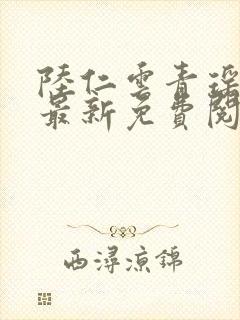 陸仁雲青瑤
最新免費閱
西潯涼錦